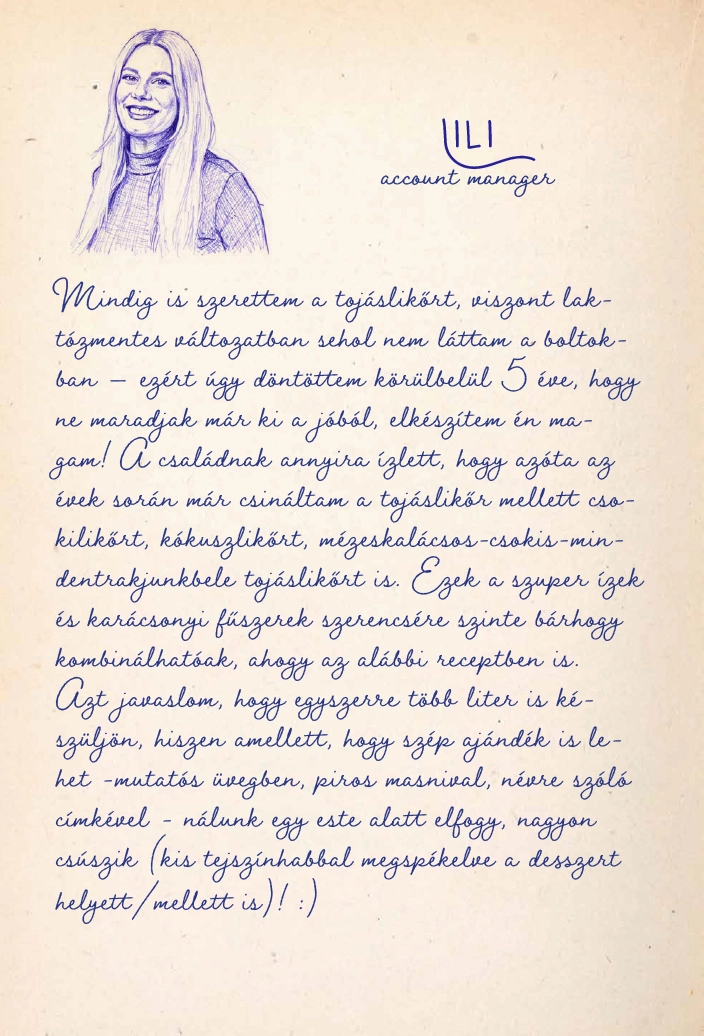 LILI
account manager
Mindig is szerettem a tojáslikőrt, viszont lak-
tózmentes változatban sehol nem láttam a boltok-
ban – ezért úgy döntöttem körülbelül 5 éve, hogy
ne maradjak már ki a jóból, elkészítem én ma-
gam! A családnak annyira ízlett, hogy azóta az
évek során már csináltam a tojáslikőr mellett cso-
kilikőrt, kókuszlikőrt, mézeskalácsos-csokis-min-
dentrakjunkbele tojáslikőrt is. Ezek a szuper ízek
és karácsonyi fűszerek szerencsére szinte bárhogy
kombinálhatóak, ahogy az alábbi receptben is.
Azt javaslom, hogy egyszerre több liter is ké-
szüljön, hiszen amellett, hogy szép ajándék is le-
het -mutatós üvegben, piros masnival, névre szóló
címkével - nálunk egy este alatt elfogy, nagyon
csúszik (kis tejszínhabbal megspékelve a desszert
helyett/mellett is)! :)